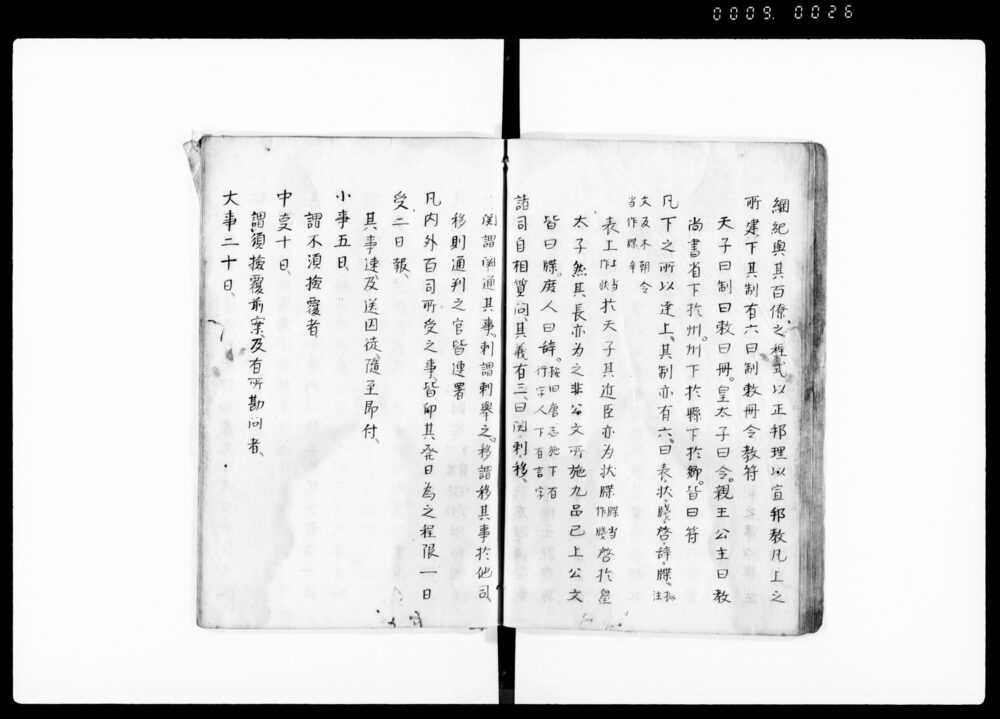 0009 0026
綱紀與其百僚之程式以正邦理以宣邦教凡上之
所建下其制有六曰制敕冊令教符
天子曰制曰敕曰冊。皇太子曰令。親王公主曰教
尚書省下於州。州下於縣下於鄉。皆曰符
凡下之所以達上、其制亦有六、曰表・狀・牋・啓・辞・牒、
文及本朝令
当作牒辛
表上 当作狀 於天子其近臣亦為狀牒 牒当作牋 啓於皇
太子然其長亦為之非公文所施九品已上公文
皆曰牒。庶人曰辞。 按旧唐志施下有
行字人下有言字
諸司自相質問、其義有三、曰関・刺・移、
関謂関通其事、刺謂刺舉之。移謂移其事於他司、
移則通判之官皆連署
凡内外百司所受之事皆印其発日為之程限一日
受二日報、
其事速及送囚徒、隨至即付、
小事五日、
謂不須撿覆者
中事十日、
謂須撿覆前案、及有所勘問者、
大事二十日、